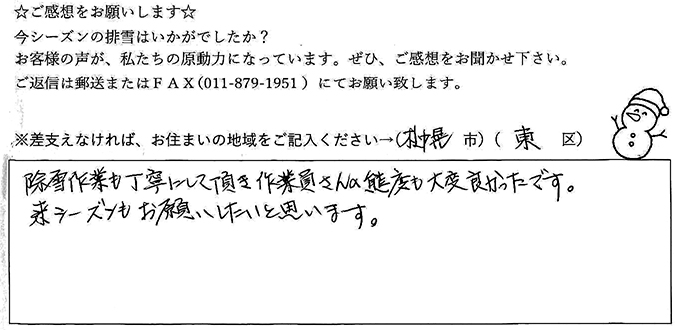 ☆ご感想をお願いします☆
今シーズンの排雪はいかがでしたか？
お客様の声が、私たちの原動力になっています。ぜひ、ご感想をお聞かせ下さい。
ご返信は郵送またはＦＡＸ（011-879-1951）にてお願い致します。
※差支えなければ、お住まいの地域をご記入ください→（札幌 市）（ 東 区）
除雪作業も丁寧にして頂き作業員さんの態度も大変良かったです。
来シーズンもお願いしたいと思います。